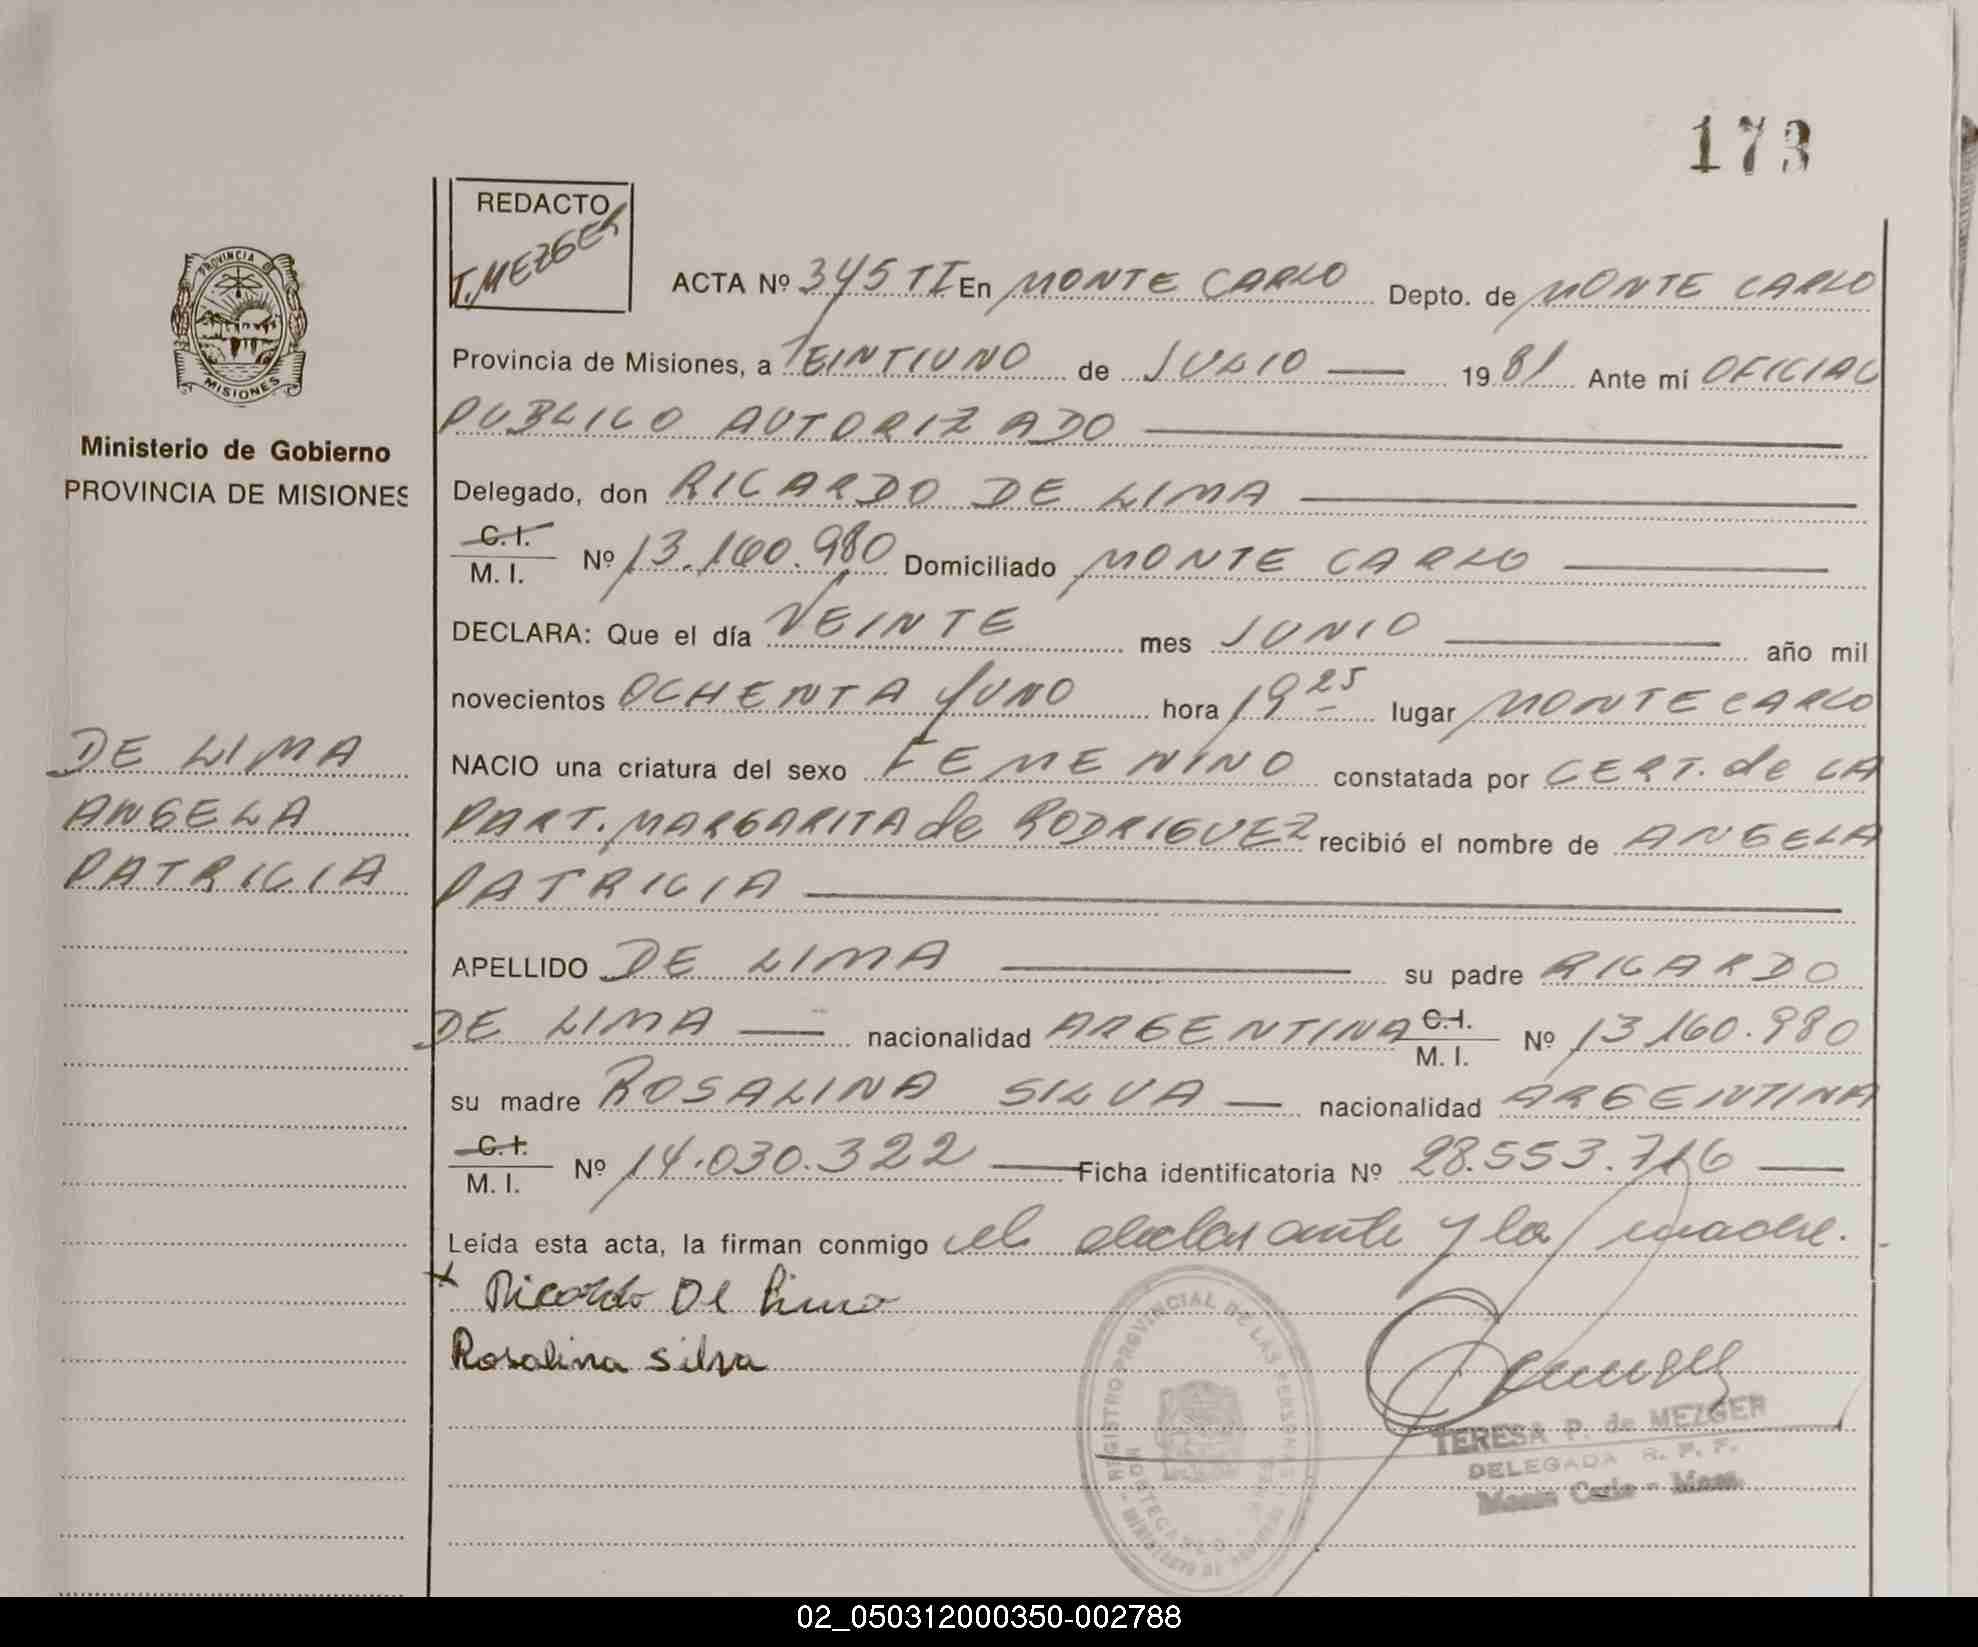 173
REDACTO
T. MEZGER
PROVINCIA DE
MISIONES
ACTA Nº 345 TI En MONTE CARLO Depto. de MONTE CARLO
Provincia de Misiones, a VEINTIUNO de JULIO 1981 Ante mí OFICIAL
PUBLICO AUTORIZADO
Ministerio de Gobierno
PROVINCIA DE MISIONES
Delegado, don RICARDO DE LIMA
C. I.
M. I. Nº 13.160.980 Domiciliado MONTE CARLO
DECLARA: Que el día VEINTE mes JUNIO año mil
novecientos OCHENTA Y UNO hora 19 25 lugar MONTE CARLO
DE LIMA
ANGELA
PATRICIA
NACIO una criatura del sexo FEMENINO constatada por CERT. de LA
PART. MARGARITA de RODRIGUEZ recibió el nombre de ANGELA
PATRICIA
APELLIDO DE LIMA su padre RICARDO
DE LIMA nacionalidad ARGENTINA C. I. M. I. Nº 13160.980
su madre ROSALINA SILVA nacionalidad ARGENTINA
C. I.
M. I. Nº 14.030.322 Ficha identificatoria Nº 28.553.716
Leída esta acta, la firman conmigo el declarante y la madre.
x Ricardo De Lima
Rosalina Silva
REGISTRO PROVINCIAL DE LAS PERSONAS
MONTECARLO
TERESA P. de MEZGER
DELEGADA R. P. P.
Monte Carlo - Mnes.
02_050312000350-002788